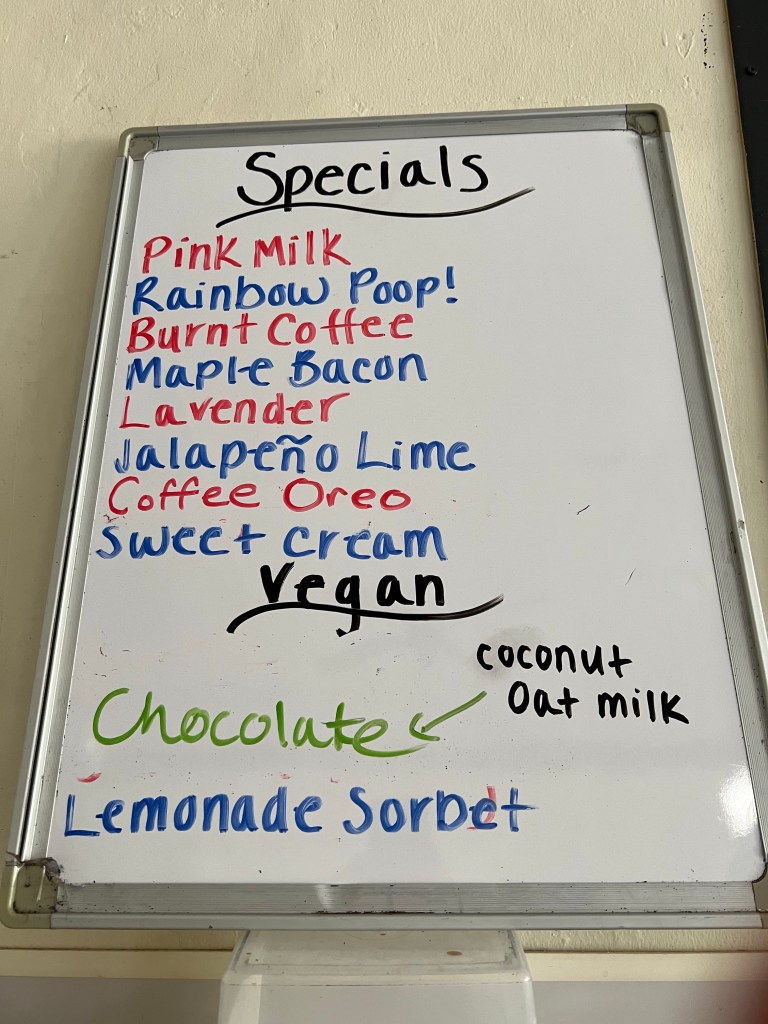 Specials
Pink Milk
Rainbow Poop!
Burnt Coffee
Maple Bacon
Lavender
Jalapeño Lime
Coffee Oreo
Sweet Cream
Vegan
coconut
Oat milk
Chocolate
Lemonade Sorbet